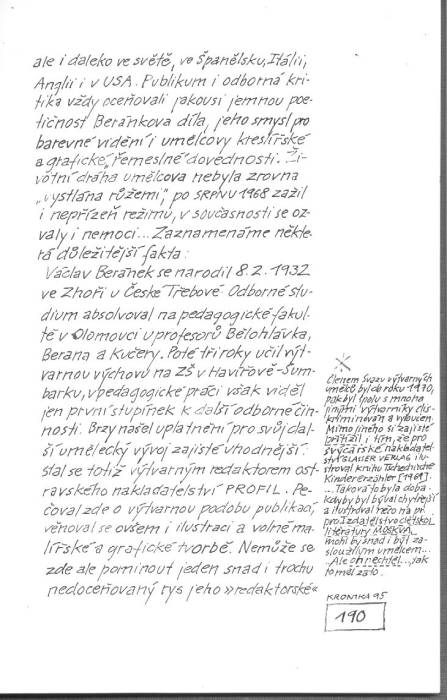 ale i daleko ve světě, ve Španělsku, Itálii,
Anglii i v USA. Publikum i odborná kri-
tika vždy oceňovali jakousi jemnou poe-
tičnost Beránkova díla, jeho smysl pro
barevné vidění i umělcovy kreslířské
a grafické, řemeslné dovednosti. Ži-
votní dráha umělcova nebyla zrovna
„vystlána růžemi", po SRPNU 1968 zažil
i nepřízeň režimu, v současnosti se oz-
valy i nemoci... Zaznamenáme někte-
rá důležitější fakta:
Václav Beránek se narodil 8.2.1932
ve Zhoři u České Třebové. Odborné stu-
dium absolvoval na pedagogické fakul-
tě v Olomouci u profesorů Bělohlávka,
Berana a Kučery. Poté tři roky učil výt-
varnou výchovu na ZŠ v Havířově-Šum-
barku, v pedagogické práci však viděl
jen první stupínek k další odborné čin-
nosti. Brzy našel uplatnění pro svůj dal-
ší umělecký vývoj zajisté vhodnější.
Stal se totiž výtvarným redaktorem ost-
ravského nakladatelství PROFIL. Pe-
čoval zde o výtvarnou podobu publikací,
věnoval se ovšem i ilustraci a volné ma-
lířské a grafické tvorbě. Nemůže se
zde ale pominout jeden snad i trochu
nedoceňovaný rys jeho »redaktorské«
Členem Svazu výtvarných
umělců byl do roku 1970,
pak byl spolu s mnoha
jinými výtvarníky dis-
kriminován a vyloučen.
Mimo jiného si zajisté
přitížil i tím, že pro
švýcarské nakladatel-
ství GLASSER VERLAG ilu-
stroval knihu Tschechische
Kinderenzähler [1969].
...Taková to byla doba.
Kdyby byl býval chytřejší
a ilustroval něco na př.
pro Izdatělstvo dětskoj
literatury MOSKVA,
mohl by snad i být za-
sloužilým umělcem...
Ale on nechtěl..., jak
to měl za to.
KRONIKA 95
190